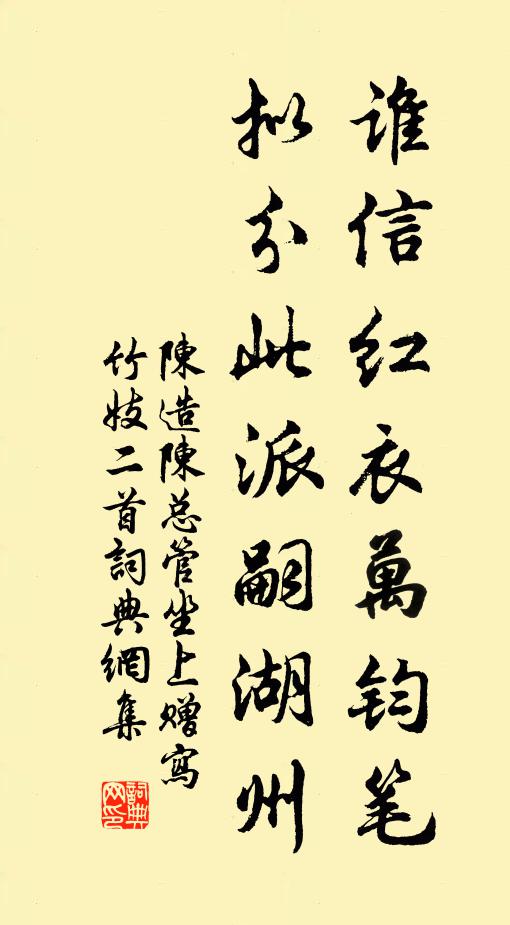 谁信红衣萬钧笔
拟分此派嗣湖州
陳造陳总管坐上赠寫
竹妓二首詞典網集
詞典网印